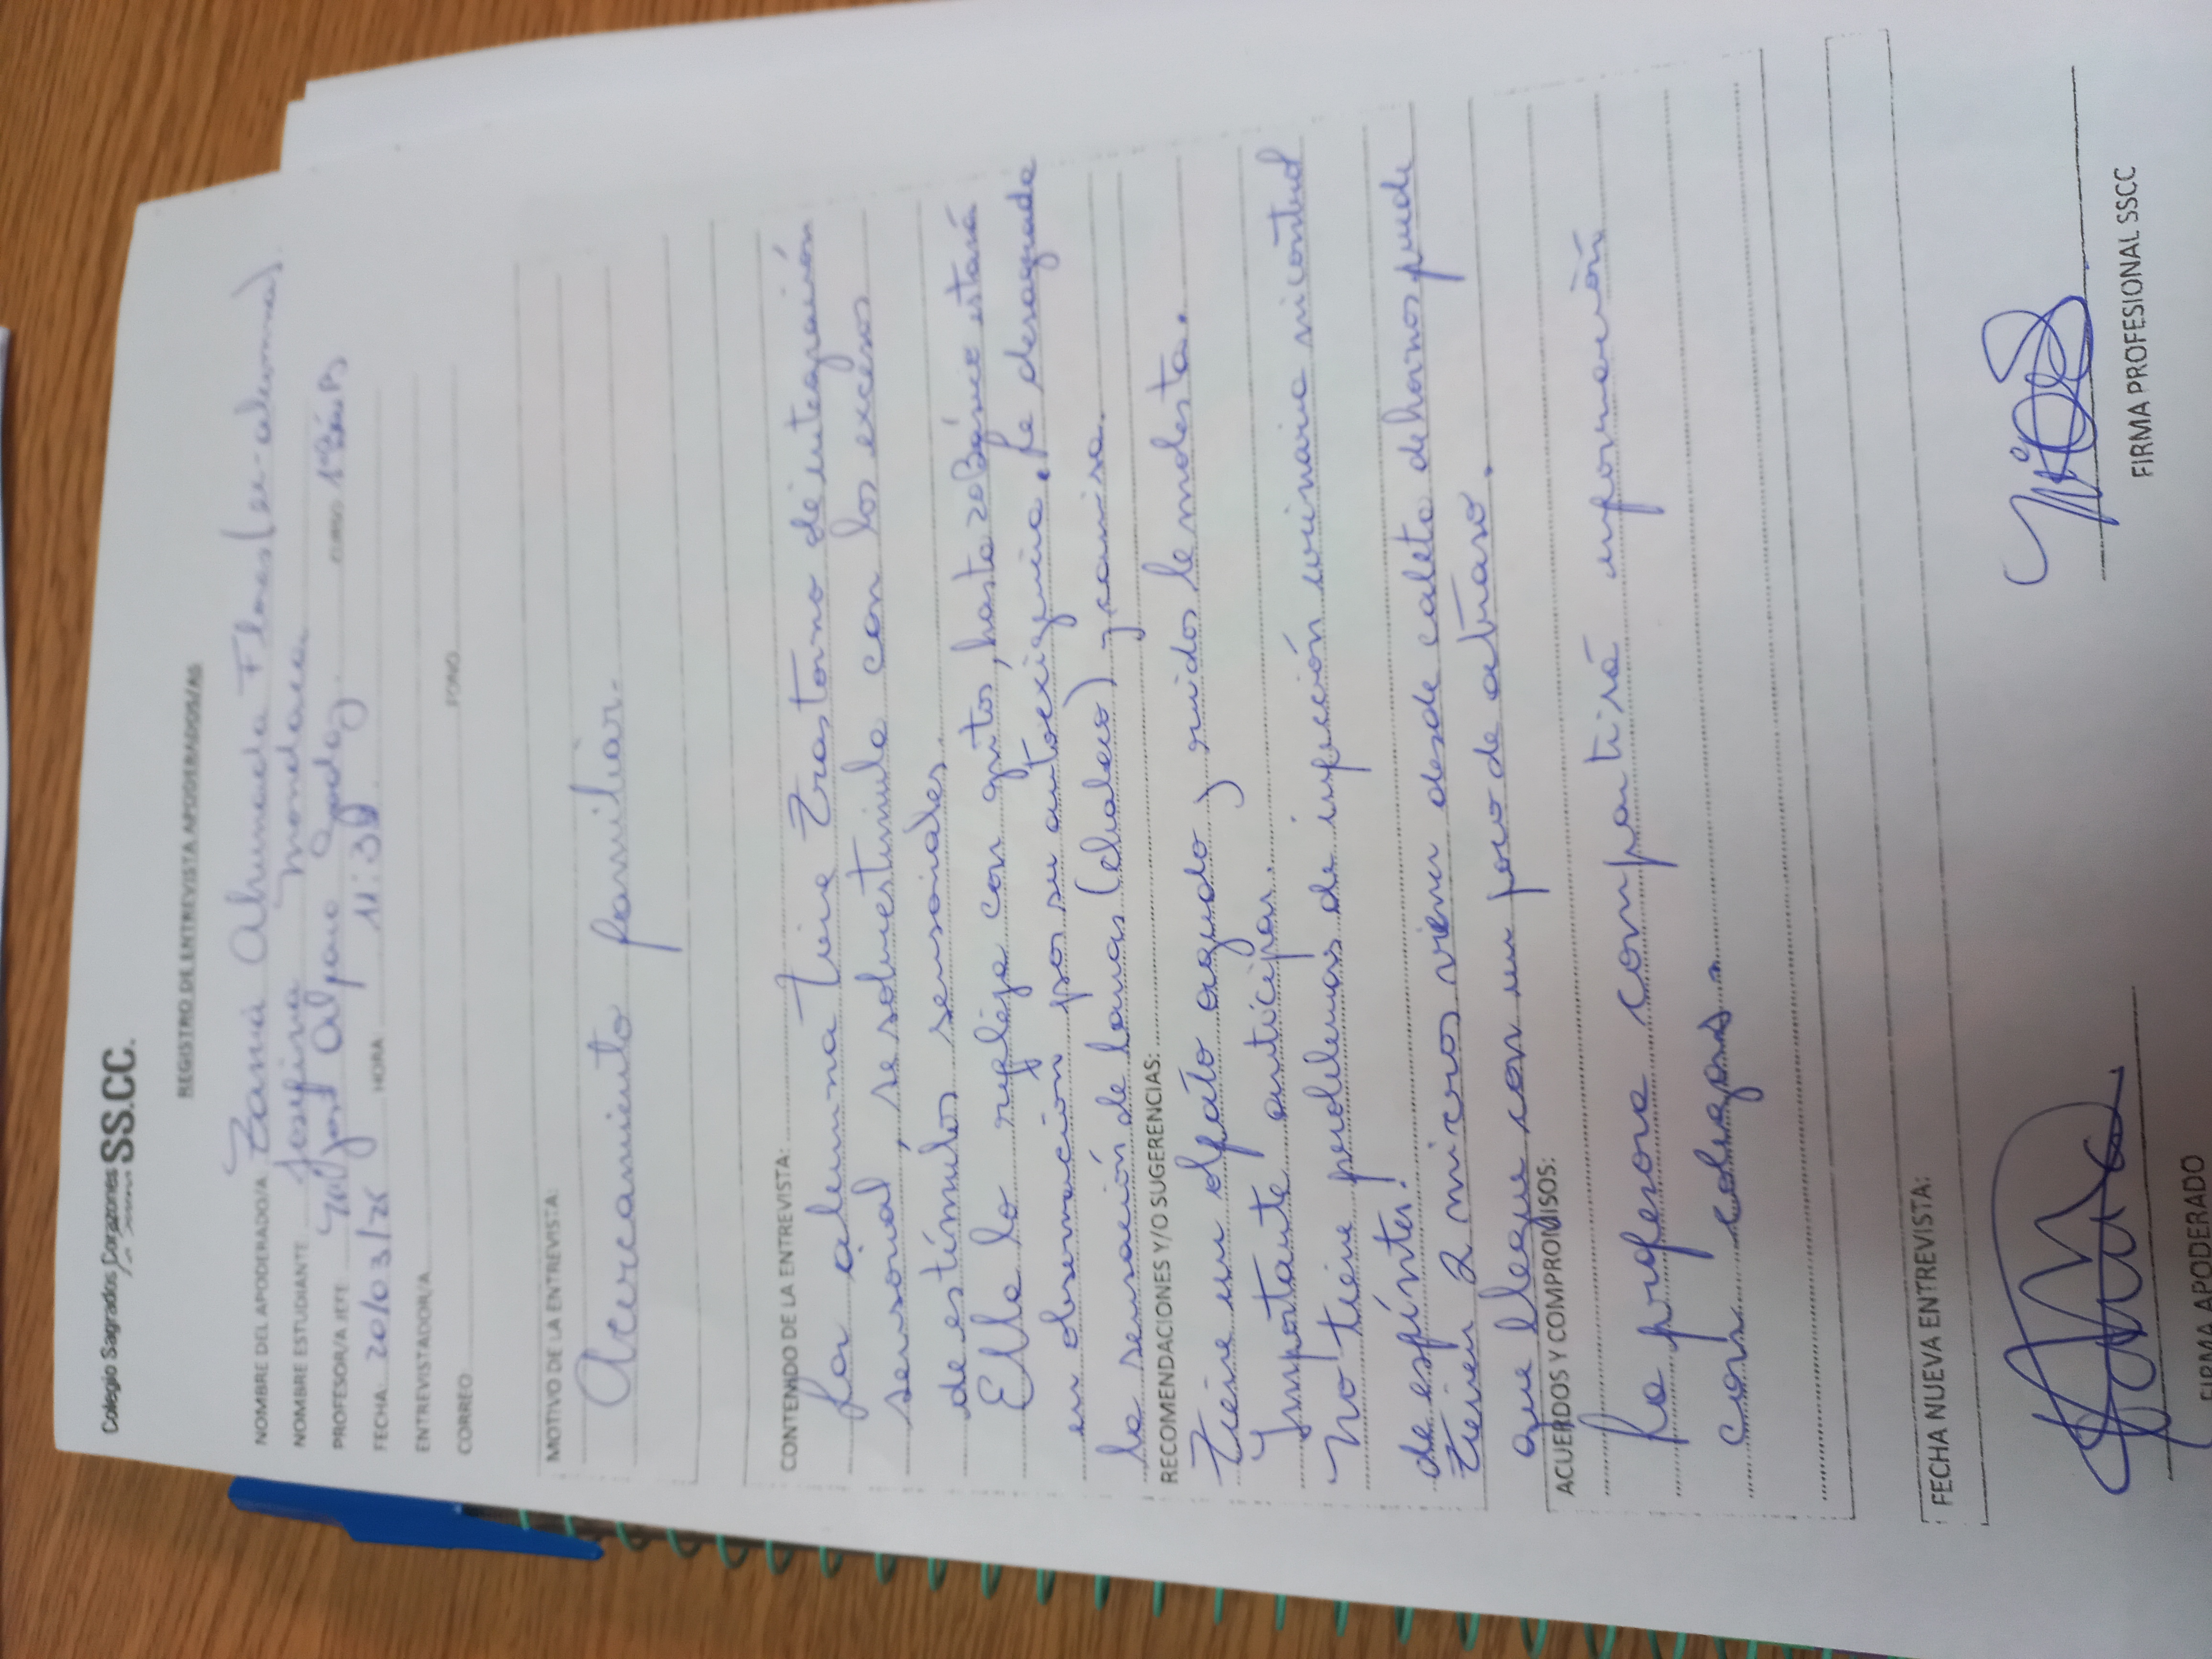 Colegio Sagrados Corazones SS.CC.
REGISTRO DE ENTREVISTA APODERADOS/AS
NOMBRE DEL APODERADO/A Zania Ahumada Flores (ex-alumna)
NOMBRE ESTUDIANTE Josefina Mondaca
PROFESOR/A JEFE José Alfaro Godoy CURSO 1º Bás B
FECHA: 20/03/26 HORA 11:30
ENTREVISTADOR/A FONO
CORREO
MOTIVO DE LA ENTREVISTA:
Acercamiento familiar.
CONTENIDO DE LA ENTREVISTA:
La alumna tiene trastorno de integración
sensorial, se sobreestimula con los excesos
de estímulos sensoriales.
Ella lo refleja con gritos, hasta 2º Básico estará
en observación por su autoexigencia. Le desagrada
la sensación de lanas (chaleco) y camisa.
RECOMENDACIONES Y/O SUGERENCIAS:
Tiene un olfato agudo y ruidos le molesta.
Importante anticipar.
No tiene problemas de infección urinaria ni control
de esfínter.
Tienen 2 micros vienen desde caleta de hornos puede
que llegue con un poco de atraso.
ACUERDOS Y COMPROMISOS:
La profesora compartirá información
con colegas.
FECHA NUEVA ENTREVISTA:
FIRMA APODERADO FIRMA PROFESIONAL SSCC